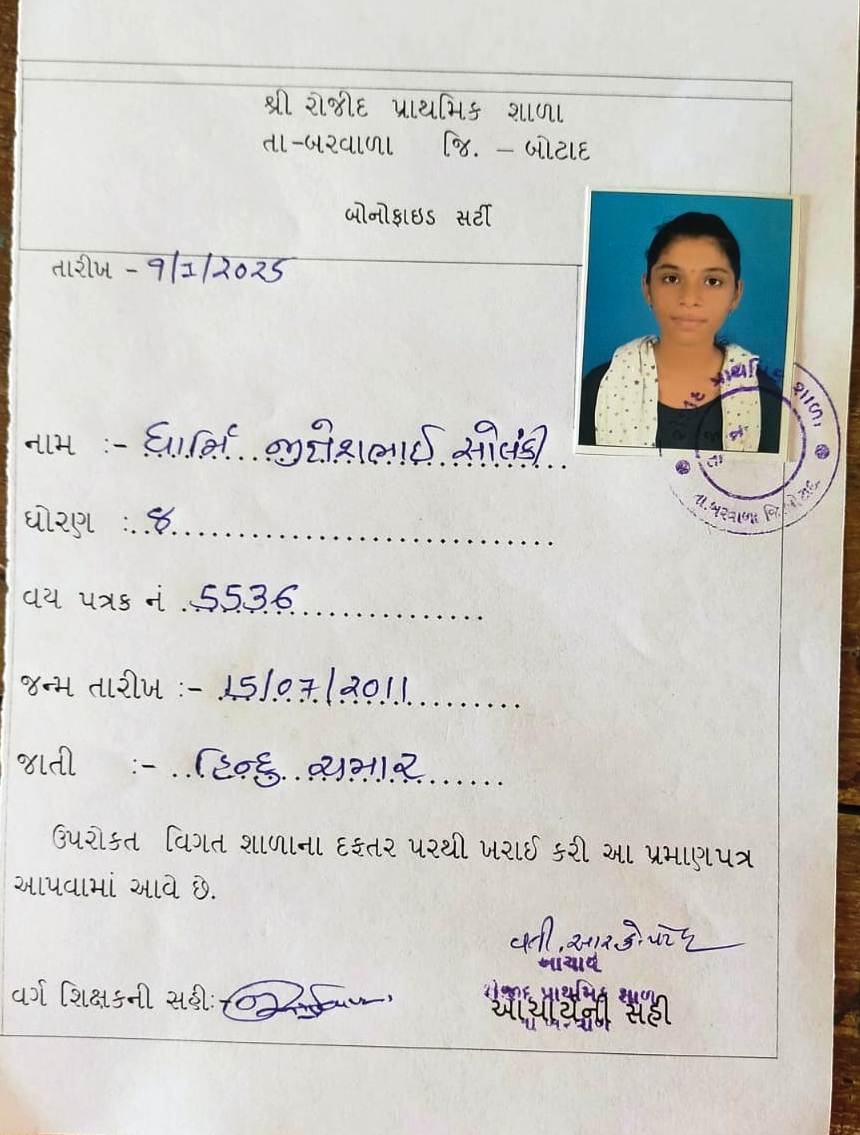 શ્રી રોજીદ પ્રાથમિક શાળા
તા-બરવાળા જિ. – બોટાદ
બોનોફાઇડ સર્ટી
તારીખ - ૧/1/2025
નામ :- ધાર્મિ જીજ્ઞેશભાઈ સોલંકી
ધોરણ : ૪
વય પત્રક નં 5536
જન્મ તારીખ :- 15/07/2011
જાતી :- હિન્દુ ચમાર
ઉપરોકત વિગત શાળાના દફતર પરથી ખરાઈ કરી આ પ્રમાણપત્ર
આપવામાં આવે છે.
વતી, આર.કે.પટેલ
રોજીદ પ્રાથમિક શાળા
વર્ગ શિક્ષકની સહી:-
આચાર્યની સહી
પ્રાથમિક શાળા
તા.બરવાળા જિ.બોટાદ